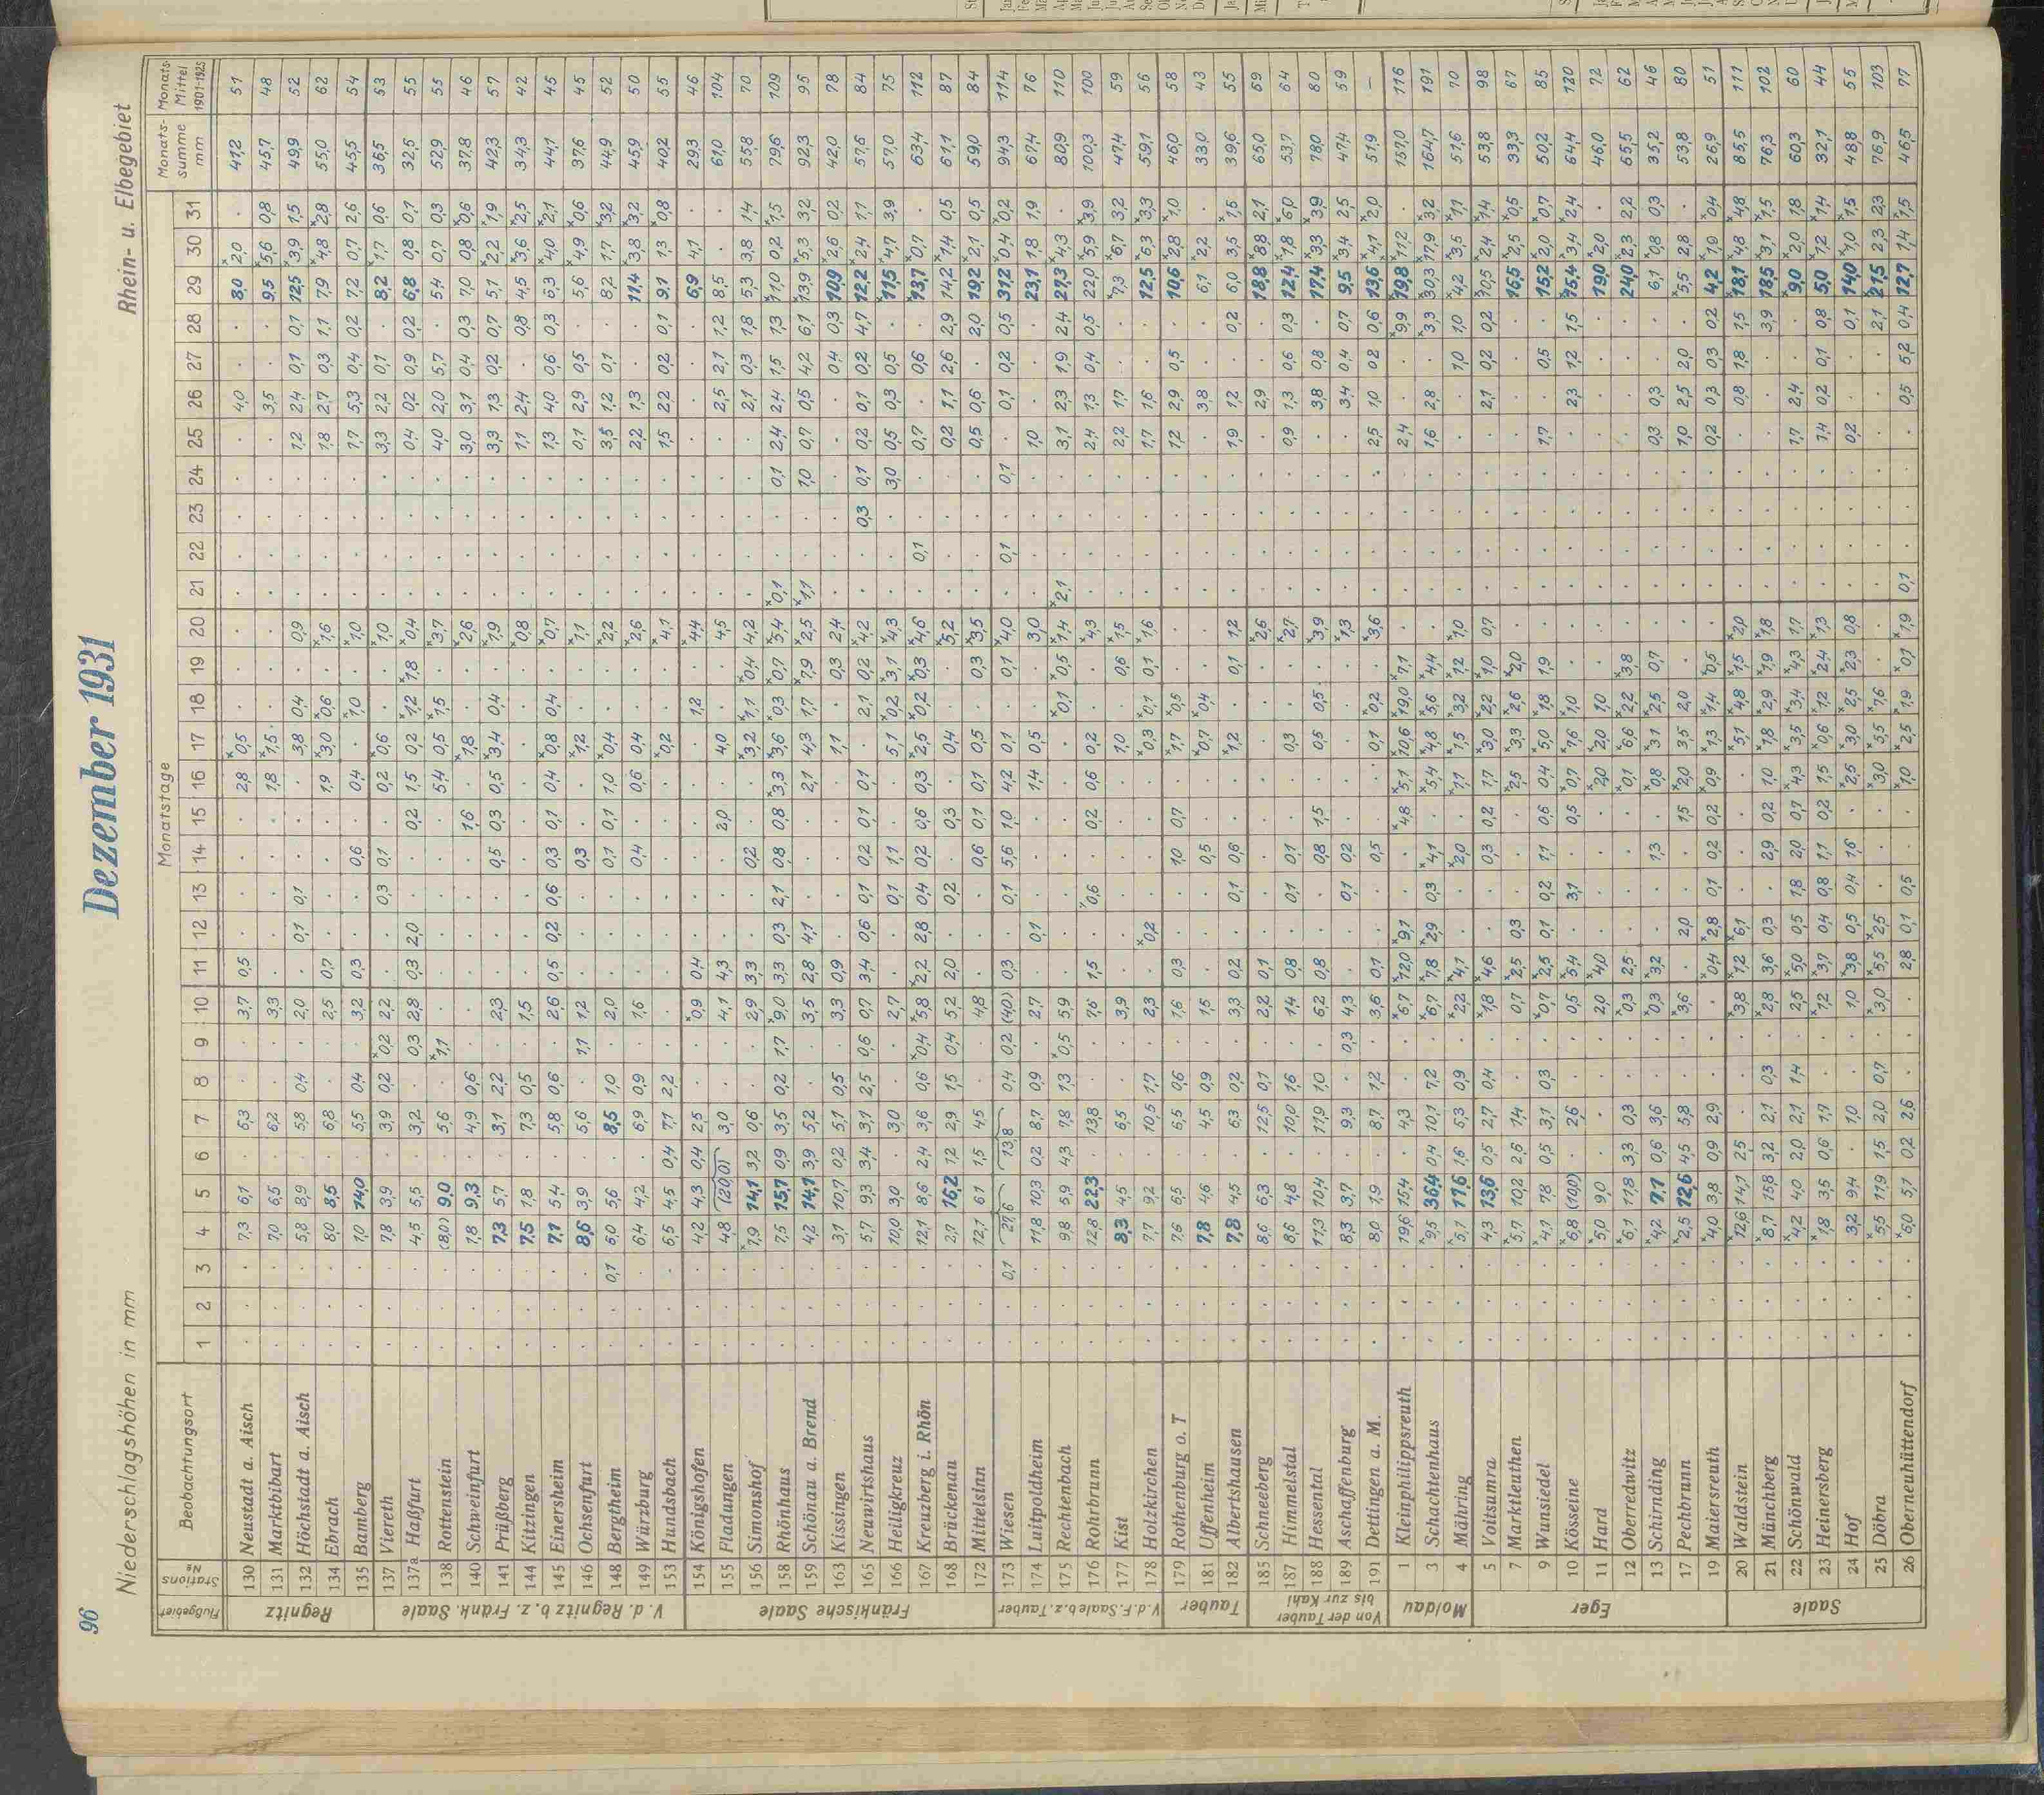 96
Niederschlagshöhen in mm
Dezember 1931
Rhein- u. Elbegebiet
Flußgebiet Stations № Beobachtungsort Monatstage Monats-summe mm Monats-Mittel 1901-1925
1 2 3 4 5 6 7 8 9 10 11 12 13 14 15 16 17 18 19 20 21 22 23 24 25 26 27 28 29 30 31
Regnitz
130 Neustadt a. Aisch . . . 7,3 6,1 . 6,3 . . 3,7 0,5 . . . . 2,8 ×0,5 . . . . . . . . 4,0 . . 8,0 ×2,0 . 41,2 51
131 Marktbibart . . . 7,0 6,5 . 6,2 . . 3,3 . . . . . 1,8 ×1,5 . . . . . . . . 3,5 . . 9,5 ×5,6 0,8 45,7 48
132 Höchstadt a. Aisch . . . 5,8 8,9 . 5,8 0,4 . 2,0 . 0,1 0,1 . . . 3,8 0,4 . 0,9 . . . . 1,2 2,4 0,1 0,1 12,5 ×3,9 1,5 49,9 52
134 Ebrach . . . 8,0 8,5 . 6,8 . . 2,5 0,7 . . . . 1,9 ×3,0 ×0,6 . ×1,6 . . . . 1,8 2,7 0,3 1,1 7,9 ×4,8 ×2,8 55,0 62
135 Bamberg . . . 1,0 14,0 . 5,5 0,4 . 3,2 0,3 . . 0,6 . 0,4 . ×1,0 . ×1,0 . . . . 1,7 5,3 0,4 0,2 7,2 0,7 2,6 45,5 54
V. d. Regnitz b. z. Fränk. Saale
137 Viereth . . . 7,8 3,9 . 3,9 0,2 ×0,2 2,2 . . 0,3 0,1 . 0,2 ×0,6 . . ×1,0 . . . . 3,3 2,2 0,1 . 8,2 ×1,7 0,6 36,5 53
137a Haßfurt . . . 4,5 5,5 . 3,2 . 0,3 2,8 0,3 2,0 . . 0,2 1,5 0,2 ×1,2 ×1,8 ×0,4 . . . . 0,4 0,2 0,9 0,2 6,8 0,8 0,1 32,5 55
138 Rottenstein . . . (8,0) 9,0 . 5,6 . ×1,1 . . . . . . 5,4 0,5 ×1,5 . ×3,7 . . . . 4,0 2,0 5,7 . 5,4 0,7 0,3 52,9 55
140 Schweinfurt . . . 7,8 9,3 . 4,9 0,6 . . . . . . 1,6 . ×1,8 . . ×2,6 . . . . 3,0 3,1 0,4 0,3 7,0 0,8 ×0,6 37,8 46
141 Prüßberg . . . 7,3 5,7 . 3,1 2,2 . 2,3 . . . 0,5 0,3 0,5 ×3,4 0,4 . ×1,9 . . . . 3,3 1,3 0,2 0,7 5,1 ×2,2 ×1,9 42,3 57
144 Kitzingen . . . 7,5 1,8 . 7,3 0,5 . 1,5 . . . . . . . . . ×0,8 . . . . 1,1 2,4 . 0,8 4,5 ×3,6 ×2,5 34,3 42
145 Einersheim . . . 7,1 5,4 . 5,8 0,6 . 2,6 0,5 0,2 0,6 0,3 0,1 0,4 ×0,8 0,4 . ×0,7 . . . . 1,3 4,0 0,6 0,3 6,3 ×4,0 ×2,1 44,1 45
146 Ochsenfurt . . . 8,6 3,9 . 5,6 . 1,1 1,2 . . . 0,3 . . ×1,2 . . ×1,1 . . . . 0,1 2,9 0,5 . 5,6 ×4,9 ×0,6 37,6 45
148 Bergtheim . . 0,1 6,0 5,6 . 8,5 1,0 . 2,0 . . . 0,1 0,1 1,0 ×0,4 . . ×2,2 . . . . 3,5 1,2 0,1 . 8,2 1,7 ×3,2 44,9 52
149 Würzburg . . . 6,4 4,2 . 6,9 0,9 . 1,6 . . . 0,4 . 0,6 0,4 . . ×2,6 . . . . 2,2 1,3 . . 11,4 ×3,8 ×3,2 45,9 50
153 Hundsbach . . . 6,5 4,5 0,4 7,1 2,2 . . . . . . . . ×0,2 . . ×4,1 . . . . 1,5 2,2 0,2 0,1 9,1 1,3 ×0,8 40,2 55
Fränkische Saale
154 Königshofen . . . 4,2 4,3 0,4 2,5 . . ×0,9 0,4 . . . . . . 1,2 . ×4,4 . . . . . . . . 6,9 4,1 . 29,3 46
155 Fladungen . . . 4,8 (20,0) 3,0 . . 4,1 4,3 . . . 2,0 . 4,0 . . 4,5 . . . . . 2,5 2,1 1,2 8,5 . . 61,0 104
156 Simonshof . . . ×1,9 14,1 3,2 0,6 . . 2,9 3,3 . . 0,2 . . ×3,2 ×1,1 ×0,4 4,2 . . . . . 2,1 0,3 1,8 5,3 3,8 1,4 55,8 70
158 Rhönhaus . . . 7,5 15,7 0,9 3,5 0,2 1,7 ×9,0 3,3 0,3 2,1 0,8 0,8 ×3,3 ×3,6 ×0,3 ×0,7 ×3,4 ×0,1 . . 0,1 2,4 2,4 1,5 1,3 ×11,0 0,2 ×1,5 79,6 109
159 Schönau a. Brend . . . 4,2 14,1 3,9 5,2 . . 3,5 2,8 4,1 . . . 2,1 4,3 1,7 ×7,9 ×2,5 ×1,1 . . 1,0 0,7 0,5 4,2 6,1 ×13,9 ×5,3 3,2 92,3 95
163 Kissingen . . . 3,1 10,7 0,2 5,1 0,5 . 3,3 0,9 . . . . . 1,1 . 0,3 2,4 . . . . . . 0,4 0,3 10,9 ×2,6 0,2 42,0 78
165 Neuwirtshaus . . . 5,7 9,3 3,4 3,1 2,5 0,6 0,7 3,4 0,6 0,1 0,2 0,1 0,1 . 2,1 0,2 ×4,2 . . 0,3 0,1 0,2 0,1 0,2 4,7 12,2 2,4 1,1 57,6 84
166 Heiligkreuz . . . 10,0 3,0 . 3,0 . . 2,7 . . 0,1 1,1 . . 5,1 ×0,2 ×3,1 ×4,3 . . . 3,0 0,5 0,3 0,5 . ×11,5 ×4,7 3,9 57,0 75
167 Kreuzberg i. Rhön . . . 12,1 8,6 2,4 3,6 0,6 ×0,4 ×5,8 ×2,2 2,8 0,4 0,2 0,6 0,3 ×2,5 ×0,2 ×0,3 ×4,6 . 0,1 . . 0,7 . 0,6 . ×13,7 ×0,7 . 63,4 112
168 Brückenau . . . 2,7 16,2 1,2 2,9 1,5 0,4 5,2 2,0 . 0,2 . 0,3 . 0,4 . . ×5,2 . . . . 0,2 1,1 2,6 2,9 14,2 ×1,4 0,5 61,1 87
172 Mittelsinn . . . 12,1 6,1 1,5 4,5 . . 4,8 . . . 0,6 0,1 0,1 0,5 . 0,3 ×3,5 . . . . 0,5 0,6 . 2,0 19,2 ×2,1 0,5 59,0 84
V. d. F. Saale b. z. Tauber
173 Wiesen . . 0,1 27,6 13,8 0,4 0,2 (4,0) 0,3 . 0,1 5,6 1,0 4,2 0,1 . 0,1 ×4,0 . 0,1 . 0,1 . 0,1 0,2 0,5 31,2 ×0,4 ×0,2 94,3 114
174 Luitpoldheim . . . 11,8 10,3 0,2 8,7 0,9 . 2,7 . 0,1 . . . 1,4 0,5 . . 3,0 . . . . 1,0 . . . 23,1 1,8 1,9 67,4 76
175 Rechtenbach . . . 9,8 5,9 4,3 7,8 1,3 ×0,5 5,9 . . . . . . . ×0,1 ×0,5 ×1,4 ×2,1 . . . 3,1 2,3 1,9 2,4 27,3 ×4,3 . 80,9 110
176 Rohrbrunn . . . 12,8 22,3 . 13,8 . . 7,6 1,5 . ×0,6 . 0,2 0,6 0,2 . . ×4,3 . . . . 2,4 1,3 0,4 0,5 22,0 ×5,9 ×3,9 100,3 100
177 Kist . . . 8,3 4,5 . 6,5 . . 3,9 . . . . . . 1,0 . 0,6 ×1,5 . . . . 2,2 1,7 . . ×7,3 ×6,7 3,2 47,4 59
178 Holzkirchen . . . 7,7 9,2 . 10,5 1,7 . 2,3 . ×0,2 . . . . ×0,3 ×0,1 0,1 ×1,6 . . . . 1,7 1,6 . . 12,5 ×6,3 ×3,3 59,1 56
Tauber
179 Rothenburg o. T . . . 7,6 6,5 . 6,5 0,6 . 1,6 0,3 . . 1,0 0,7 . ×1,7 ×0,5 . . . . . . 1,2 2,9 0,5 . 10,6 ×2,8 ×1,0 46,0 58
181 Uffenheim . . . 7,8 4,6 . 4,5 0,9 . 1,5 . . . 0,5 . . ×0,7 ×0,4 . . . . . . . 3,8 . . 6,1 ×2,2 . 33,0 43
182 Albertshausen . . . 7,8 4,5 . 6,3 0,2 . 3,3 0,2 . 0,1 0,6 . . ×1,2 . 0,1 1,2 . . . . 1,9 1,2 . 0,2 6,0 3,5 ×1,5 39,6 55
Von der Tauber bis zur Kahl
185 Schneeberg . . . 8,6 6,3 . 12,5 0,1 . 2,2 0,1 . . . . . . . . ×2,6 . . . . . 2,9 . . 18,8 ×8,8 2,1 65,0 69
187 Himmelstal . . . 8,6 4,8 . 10,0 1,6 . 1,4 0,8 . 0,1 0,1 . . 0,3 . . ×2,7 . . . . 0,9 1,3 0,6 0,3 12,4 ×1,8 ×6,0 53,7 64
188 Hessental . . . 11,3 10,4 . 11,9 1,0 . 6,2 0,8 . . 0,8 1,5 . 0,5 0,5 . ×3,9 . . . . . 3,8 0,8 . 17,4 ×3,3 ×3,9 78,0 80
189 Aschaffenburg . . . 8,3 3,7 . 9,3 . 0,3 4,3 . . 0,1 0,2 . . . . . ×1,3 . . . . . 3,4 0,4 0,7 9,5 ×3,4 2,5 47,4 59
191 Dettingen a. M. . . . 8,0 1,9 . 8,7 1,2 . 3,6 0,1 . . 0,5 . . 0,1 ×0,2 . ×3,6 . . . . 2,5 1,0 0,2 0,6 13,6 ×4,1 ×2,0 51,9 –
Moldau
1 Kleinphilippsreuth . . . 19,6 15,4 . 4,3 . . ×6,7 ×12,0 ×9,1 . . ×4,8 ×5,1 ×10,6 ×19,0 ×7,1 . . . . . 2,4 . . ×9,9 ×19,8 ×11,2 . 157,0 116
3 Schachtenhaus . . . ×9,5 36,4 0,4 10,1 7,2 . ×6,7 ×7,8 ×2,9 0,3 ×4,1 . ×5,4 ×4,8 ×5,6 ×4,4 . . . . . 1,6 2,8 . ×3,3 ×30,3 ×17,9 ×3,2 164,7 191
4 Mähring . . . ×5,1 11,6 1,6 5,3 0,9 . ×2,2 ×4,1 . . ×2,0 . ×1,1 ×1,5 ×3,2 ×1,2 ×1,0 . . . . . . 1,0 1,0 ×4,2 ×3,5 ×1,1 51,6 70
Eger
5 Voitsumra . . . 4,3 13,6 0,5 2,7 0,4 . ×1,8 ×4,6 . . 0,3 0,2 1,7 ×3,0 ×2,2 ×1,0 0,7 . . . . . 2,1 0,2 0,2 ×10,5 ×2,4 ×1,4 53,8 98
7 Marktleuthen . . . ×5,7 10,2 2,6 1,4 . . 0,7 ×2,5 0,3 . . . ×2,5 ×3,3 ×2,6 ×2,0 . . . . . . . . . 16,5 ×2,5 ×0,5 33,3 67
9 Wunsiedel . . . ×4,1 7,8 0,5 3,1 0,3 . ×0,7 ×2,5 0,1 0,2 1,1 0,6 0,4 ×5,0 ×1,8 1,9 . . . . . 1,7 . 0,5 . 15,2 ×2,0 ×0,7 50,2 85
10 Kösseine . . . ×6,8 (10,0) . 2,6 . . 0,5 ×5,4 . 3,1 . 0,5 ×0,7 ×7,6 ×1,0 . . . . . . . 2,3 1,2 1,5 ×15,4 ×3,4 ×2,4 64,4 120
11 Hard . . . ×5,0 9,0 . . . . 2,0 ×4,0 . . . . ×2,0 ×2,0 1,0 . . . . . . . . . . 19,0 ×2,0 . 46,0 72
12 Oberredwitz . . . ×6,1 11,8 3,3 0,3 . . ×0,3 2,5 . . . . ×0,1 ×6,6 ×2,2 ×3,8 . . . . . . . . . 24,0 ×2,3 2,2 65,5 62
13 Schirnding . . . ×4,2 7,1 0,6 3,6 . . ×0,3 ×3,2 . . 1,3 . ×0,8 ×3,1 ×2,5 0,7 . . . . . 0,3 0,3 . . 6,1 ×0,8 0,3 35,2 46
17 Pechbrunn . . . ×2,5 12,6 4,5 5,8 . . ×3,6 . 2,0 . . 1,5 ×2,0 3,5 2,0 . . . . . . 1,0 2,5 2,0 . ×5,5 2,8 . 53,8 80
19 Maiersreuth . . . ×4,0 3,8 0,9 2,9 . . . ×0,4 ×2,8 0,1 0,2 0,2 ×0,9 ×1,3 ×1,4 ×0,5 . . . . . 0,2 0,3 0,3 0,2 4,2 ×1,9 ×0,4 26,9 51
Saale
20 Waldstein . . . ×12,6 14,1 2,5 . . . ×3,8 ×1,2 ×6,1 . . . . ×5,1 ×4,8 ×1,5 ×2,0 . . . . . 0,8 1,8 ×1,5 ×18,1 ×4,8 ×4,8 85,5 111
21 Münchberg . . . ×8,7 15,8 3,2 2,1 0,3 . ×2,8 3,6 0,3 . 2,9 0,2 1,0 ×1,8 ×2,9 ×1,9 ×1,8 . . . . . . . 3,9 ×18,5 ×3,1 ×1,5 76,3 102
22 Schönwald . . . ×4,2 4,0 2,0 2,1 1,4 . 2,5 ×5,0 0,5 1,8 2,0 0,7 ×4,3 ×3,5 ×3,4 ×4,3 1,7 . . . . 1,7 2,4 . . ×9,0 ×2,0 1,8 60,3 60
23 Heinersberg . . . ×1,8 3,5 0,6 1,7 . . ×1,2 ×3,7 0,4 0,8 1,1 0,2 1,5 ×0,6 ×1,2 ×2,4 ×1,3 . . . . 1,4 0,2 0,1 0,8 5,0 ×1,2 ×1,4 32,1 44
24 Hof . . . 3,2 9,4 . 1,0 . . 1,0 ×3,8 0,5 0,4 1,6 . ×2,5 ×3,0 ×2,5 ×2,3 0,8 . . . . 0,2 . . 0,1 ×14,0 ×1,0 ×1,5 48,8 55
25 Döbra . . . ×5,5 11,9 1,5 2,0 0,7 . ×3,0 ×5,5 ×2,5 . . . ×3,0 ×5,5 ×7,6 . . . . . . . . . 2,1 ×21,5 2,3 2,3 76,9 103
26 Oberneuhüttendorf . . . ×6,0 5,1 0,2 2,6 . . . 2,8 0,1 0,5 . . ×1,0 ×2,5 ×1,9 ×0,1 ×1,9 0,1 . . . . 0,5 5,2 0,4 12,7 1,4 ×1,5 46,5 77